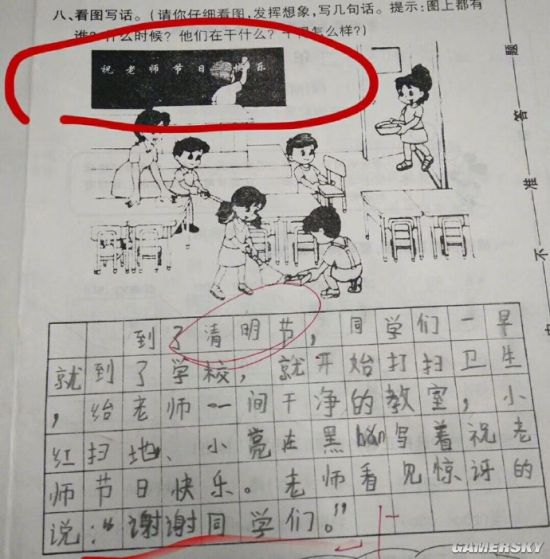 八、看图写话。(请你仔细看图,发挥想象,写几句话。提示:图上都有
谁?什么时候?他们在干什么?干得怎么样?)
祝老师节日快乐
答题
不准
到了清明节,同学们一早
就到了学校,就开始打扫卫生
,给老师一间干净的教室,小
红扫地、小亮在黑bǎn写着祝老
师节日快乐。老师看见惊讶的
说:“谢谢同学们。”
GAMERSKY